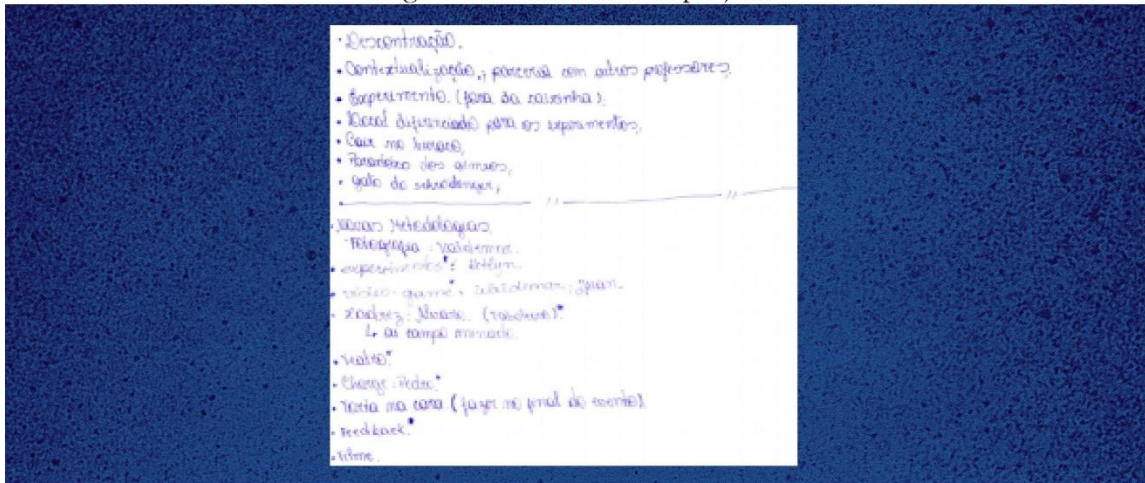 • Descontração.
• Contextualização, parceria com outros professores;
• Experimento. (fora da caixinha);
• Local diferenciado para os experimentos;
• Cair no buraco;
• Paradoxo dos gêmeos;
• gato do schrödinger;
Novas Metodologias
Fotografia:
• experimentos*: Ketlyn.
• video-game*,
• Xadrez: (tabuleiro)*
↳ ou campo minado
• teatro*
• Charge: Pedro*
• Torta na cara (fazer no final do evento)
• Feedback*
• Filme.